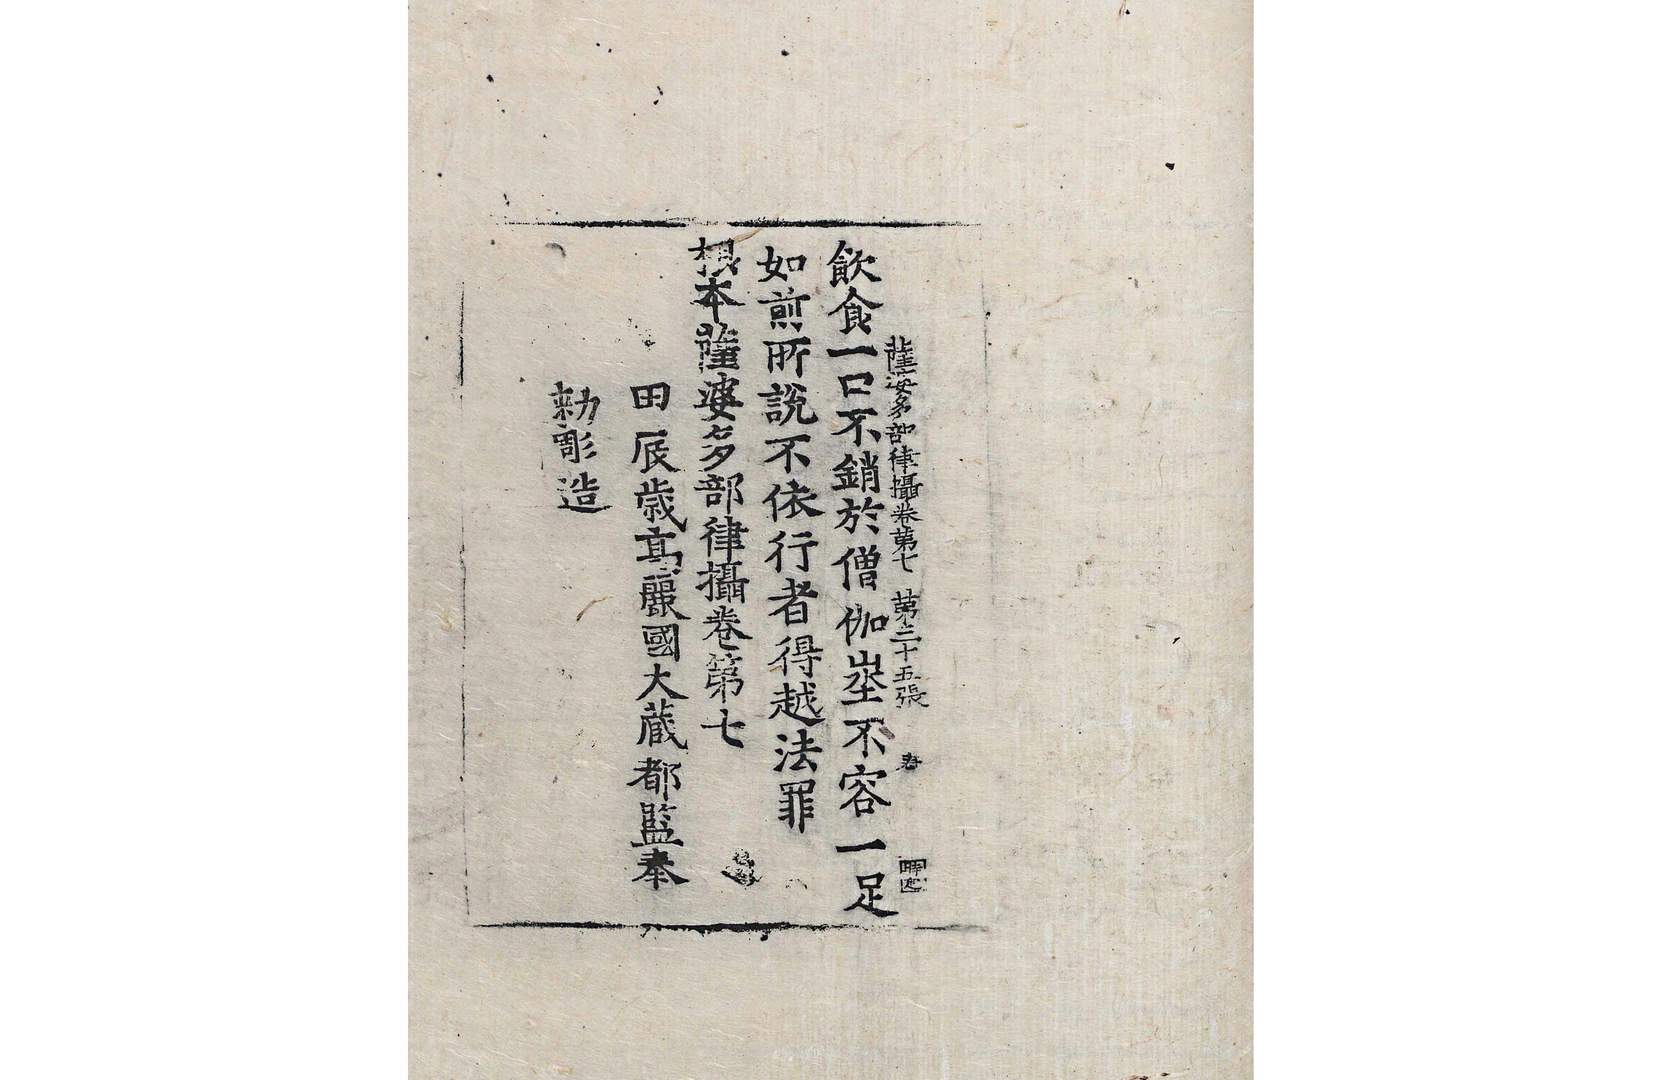 薩婆多部律攝卷第七 第二十五張
飲食一口不銷於僧伽埊不容一足
如煎所說不依行者得越法罪
根本薩婆多部律攝卷第七
田辰歲高麗國大藏都監奉
勅彫造